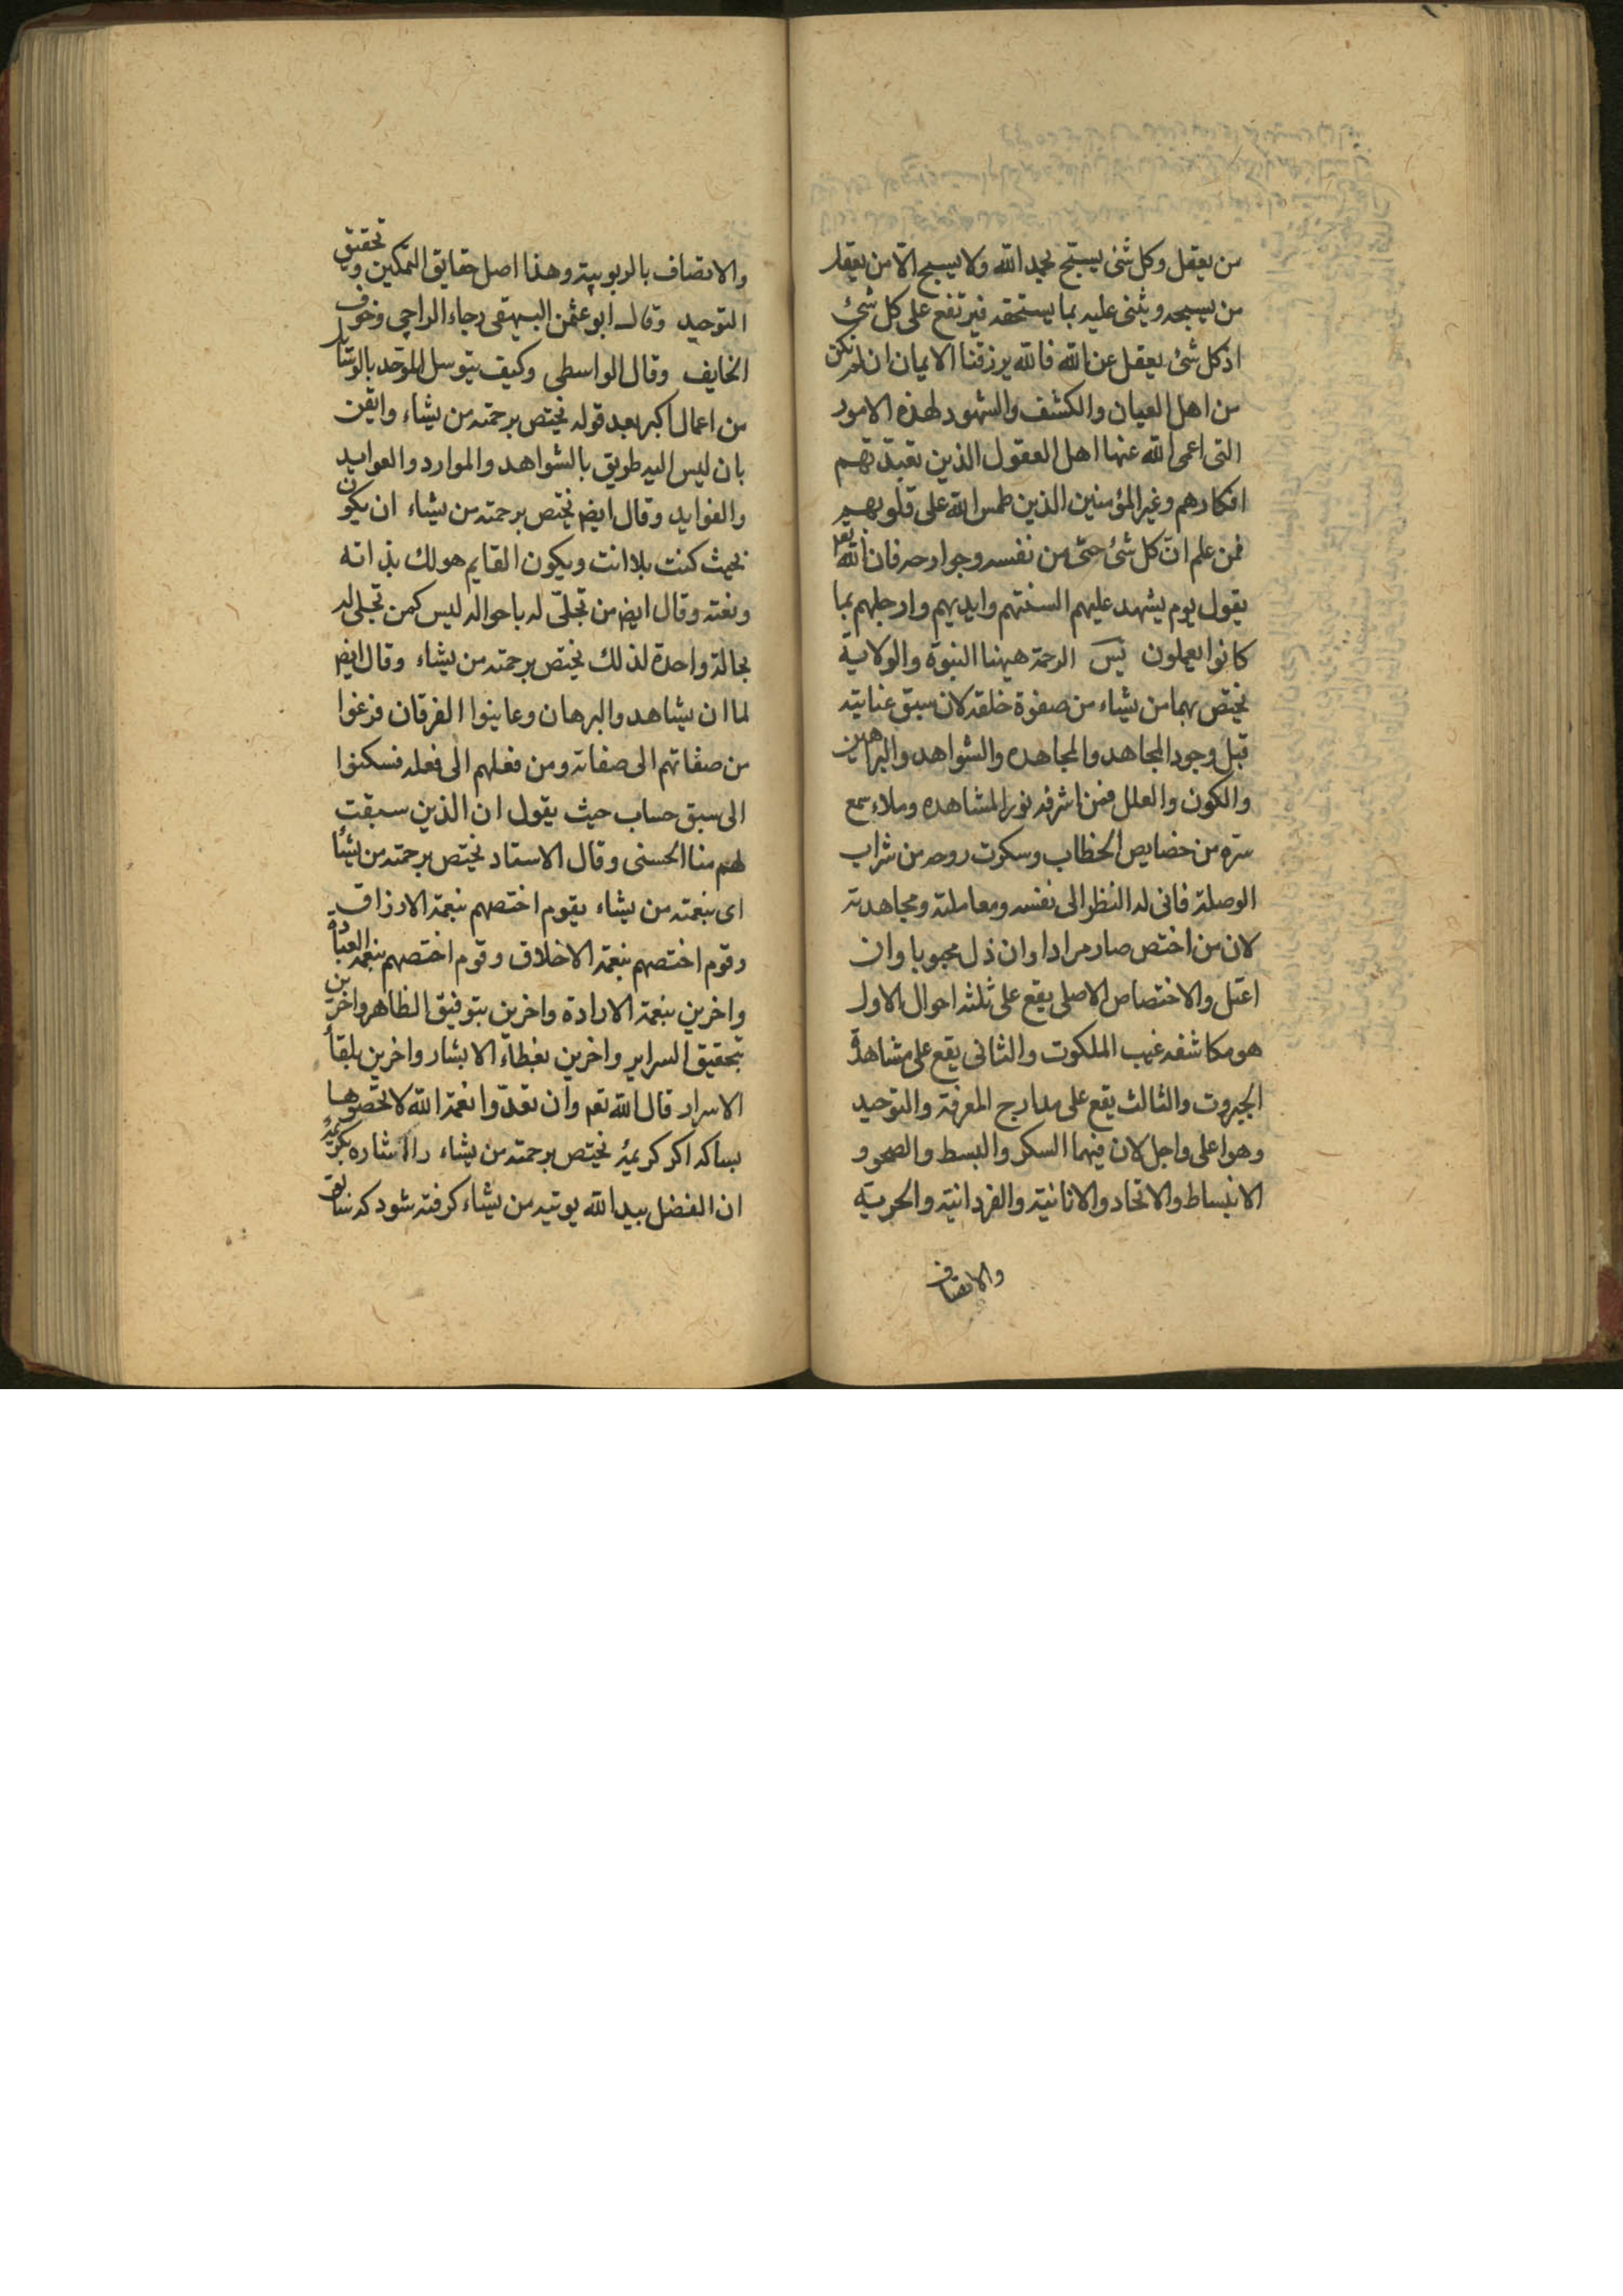 من يعقل وكل شئ يسبح بحمد الله ولا يسبح الا من يعقل
من يسبحه ويثنى عليه بما يستحقه فيرتفع على كل شئ
اذ كل شئ يعقل عن الله فالله يرزقنا الايمان ان لم نكن
من اهل العيان والكشف والشهود لهذه الامور
التى اعمى الله عنها اهل العقول الذين تعبدتهم
افكارهم وغير المؤمنين الذين طمس الله على قلوبهم
فمن علم ان كل شئ حتى من نفسه وجوارحه فان الله تعم
يقول يوم يشهد عليهم السنتهم وايديهم وارجلهم بما
كانوا يعملون يس الرحمة ههنا النبوة والولاية
يختص بهما من يشاء من صفوة خلقه لان سبق عنايته
قبل وجود المجاهد والمجاهده والشواهد والبراهين
والكون والعلل فمن اشرفه نور المشاهده وملاء سمع
سره من خصايص الخطاب وسكرت روحه من شراب
الوصلة فانى له النظر الى نفسه ومعاملته ومجاهدته
لان من اختص صار مرادا وان ذل محبوبا وان
اعتل والاختصاص الاصلى يقع على ثلثه احوال الاول
هو مكاشفه غيب الملكوت والثانى يقع على مشاهدة
الجبروت والثالث يقع على مدارج المعرفة والتوحيد
وهو اعلى واجل لان فيهما السكر والبسط والصحو و
الانبساط والاتحاد والانانية والفردانية والحرية
والاتصاف
والاتصاف بالربوبية وهذا اصل حقايق التمكين وتحقيق
التوحيد وقال ابو عثمن البيهقى رجاء الراجى وخوف
الخايف وقال الواسطى وكيف يتوسل الموحد بالوسايل
من اعمال اكبر بعد قوله يختص برحمته من يشاء وايقن
بان ليس اليه طريق بالشواهد والموارد والعوايد
والفوايد وقال ايض يختص برحمته من يشاء ان يكون
بحيث كنت بلا انت ويكون القايم هو لك بذاته
ونعته وقال ايض من تجلى له باحواله ليس كمن تجلى له
بحالة واحدة لذلك يختص برحمته من يشاء وقال ايض
لما ان يشاهد والبرهان وعاينوا الفرقان فزغوا
من صفاتهم الى صفاته ومن فعلهم الى فعله فسكنوا
الى سبق حساب حيث يقول ان الذين سبقت
لهم منا الحسنى وقال الاستاد يختص برحمته من يشأ
اى بنعمته من يشاء يقوم اختصهم بنعمة الارزاق
وقوم اختصهم بنعمة الاخلاق وقوم اختصهم بنعمة العبادة
واخرين بنعمة الارادة واخرين بتوفيق الظاهر واخرين
بتحقيق السراير واخرين بغطاء الابشار واخرين بلقأ
الاسرار قال الله تعم وان تعدوا نعمة الله لا تحصوها
بساكه اكر كريمۀ يختص برحمته من يشاء را اشاره بكريمۀ
ان الفضل بيد الله يوتيه من يشاء كرفته شود كه